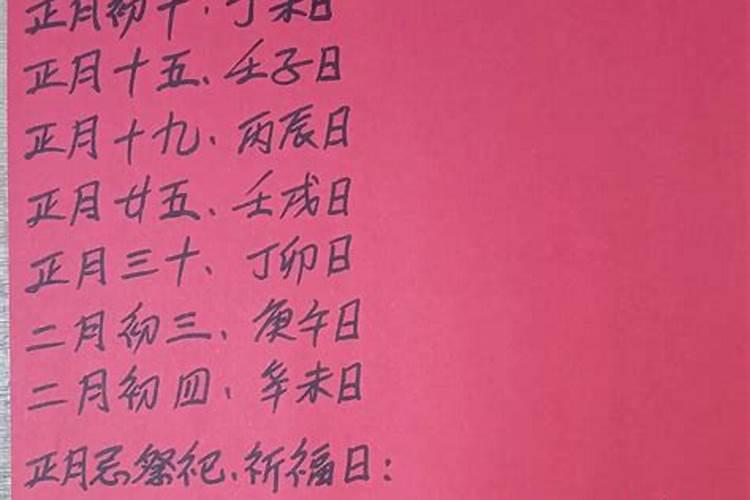 正月初十、丁未日
正月十五、壬子日
正月十九、丙辰日
正月廿五、壬戌日
正月三十、丁卯日
二月初三、庚午日
二月初四、辛未日
正月忌祭祀、祈福日：